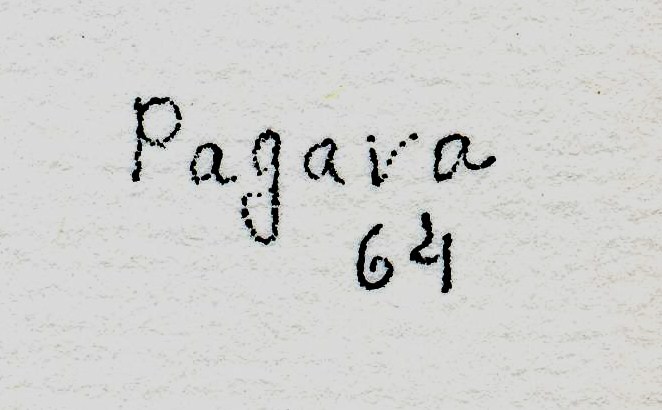 Pagava
64